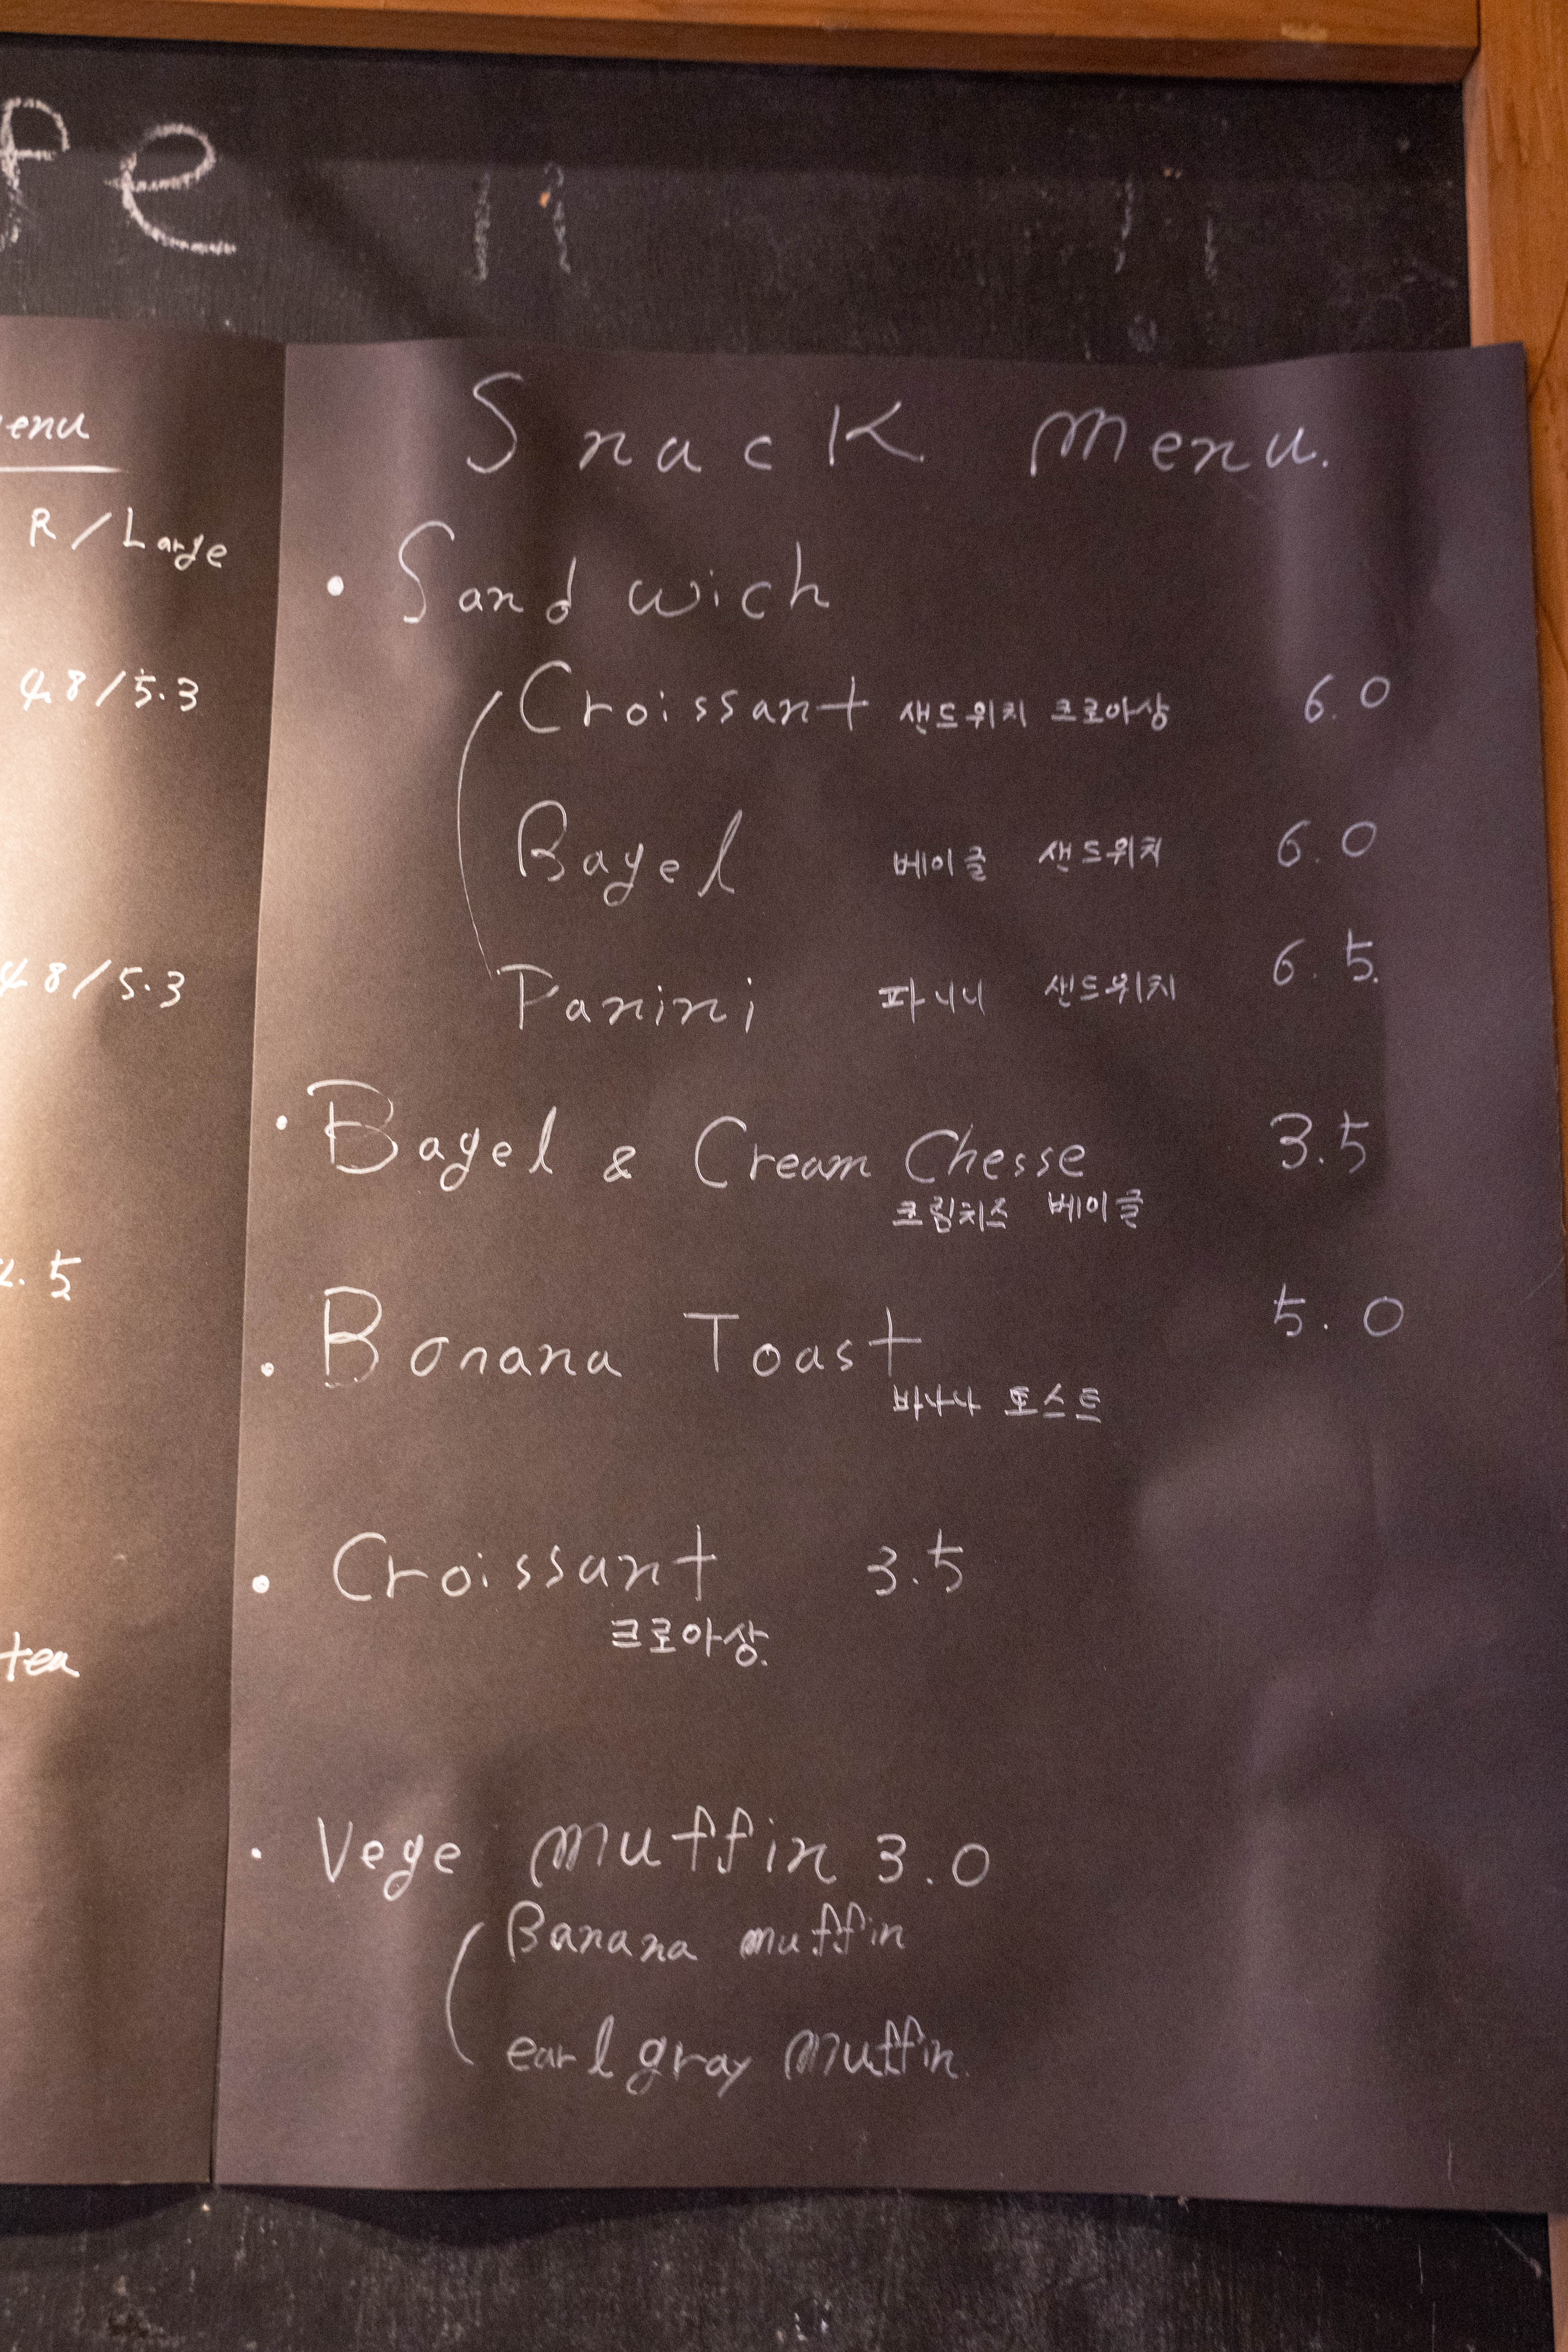 Snack menu.
R / Large
• Sandwich
4.8 / 5.3
Croissant 샌드위치 크로아상 6.0
Bagel 베이글 샌드위치 6.0
4.8 / 5.3
Panini 파니니 샌드위치 6.5
• Bagel & Cream Chesse 3.5
크림치즈 베이글
• Banana Toast 5.0
바나나 토스트
• Croissant 3.5
크로아상.
tea
• Vege muffin 3.0
Banana muffin
earl gray muffin.